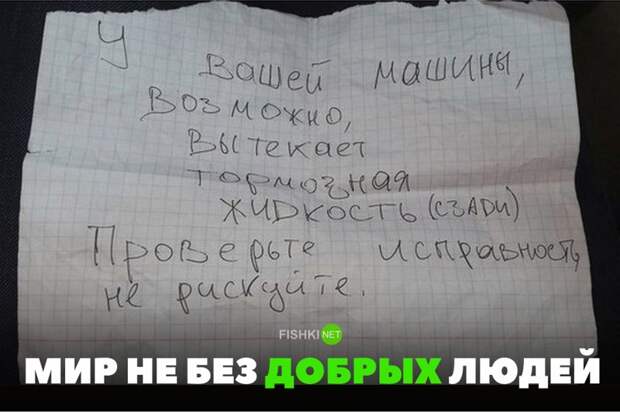 У вашей машины,
возможно,
вытекает
тормозная
жидкость (сзади)
Проверьте исправность,
не рискуйте.
FISHKI NET
МИР НЕ БЕЗ ДОБРЫХ ЛЮДЕЙ